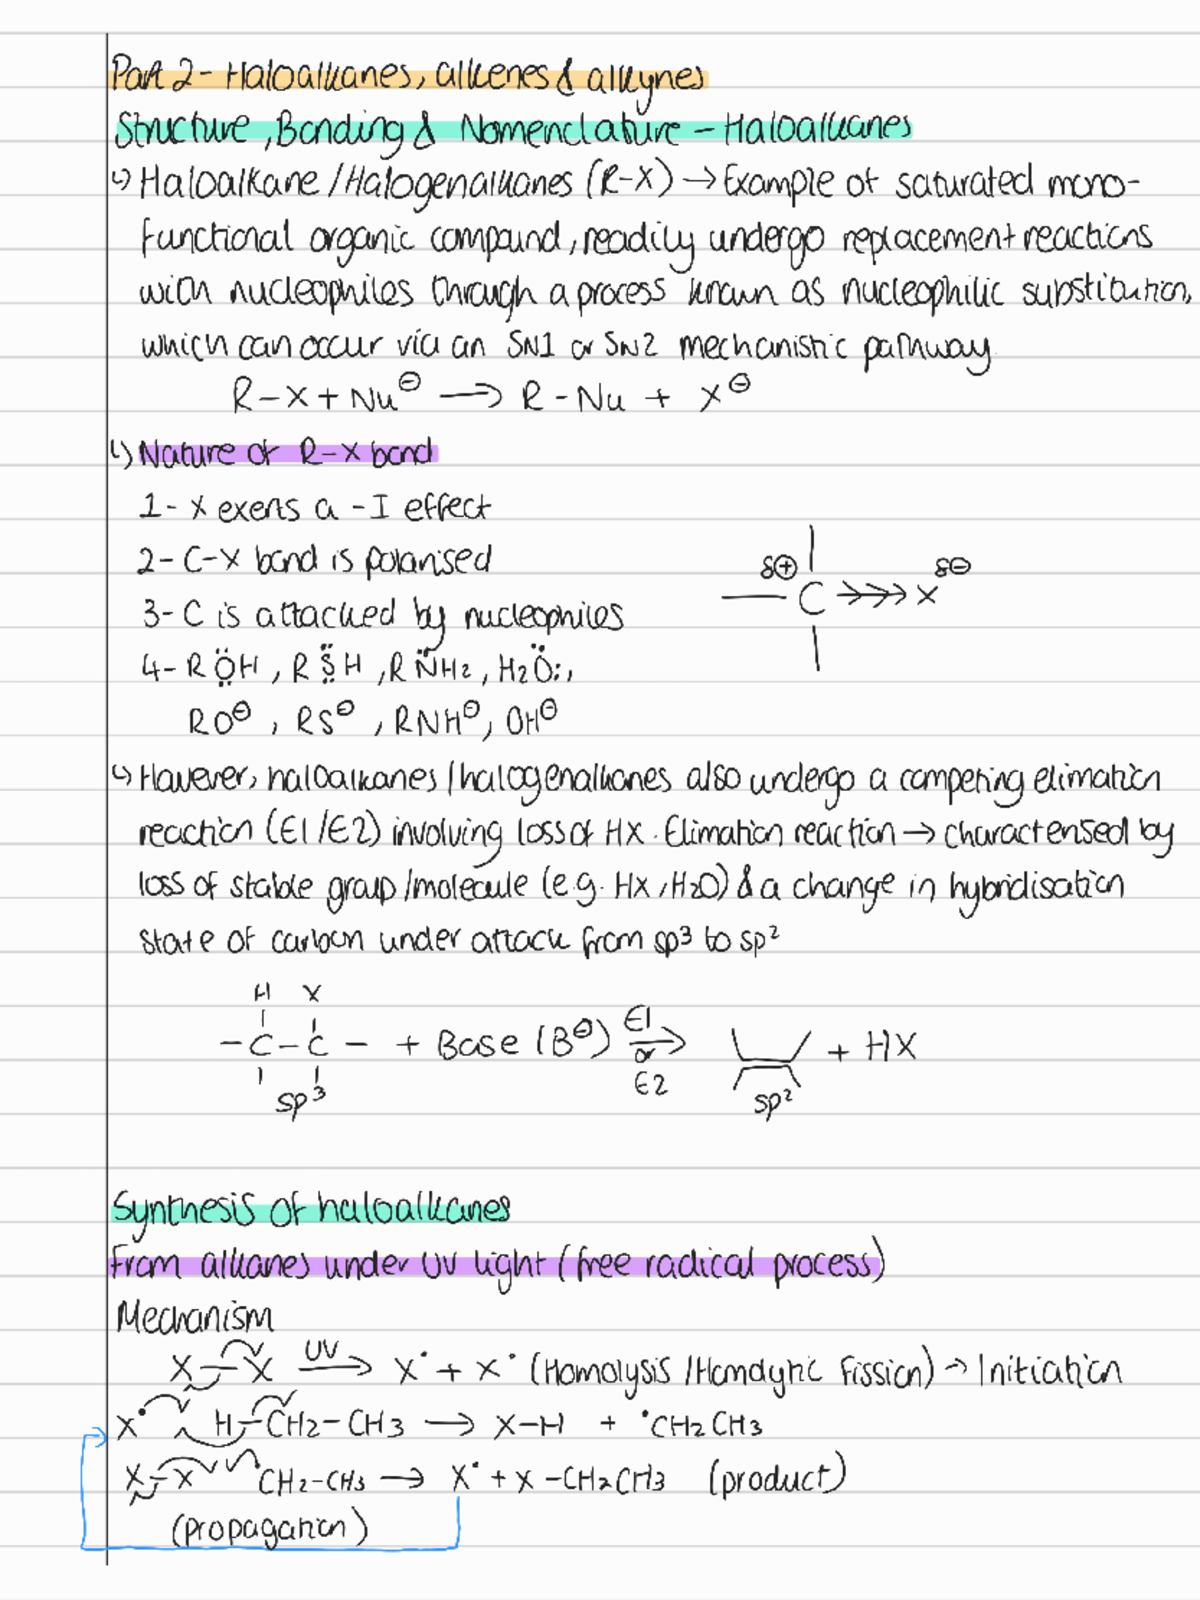 Part 2 - Haloalkanes, alkenes & alkynes
Structure, Bonding & Nomenclature - Haloalkanes
↳ Haloalkane / Halogenalkanes (R-X) → Example of saturated mono-
functional organic compound, readily undergo replacement reactions
with nucleophiles through a process known as nucleophilic substitution,
which can occur via an SN1 or SN2 mechanistic pathway.
R-X + Nu⊖ → R-Nu + X⊖
↳ Nature of R-X bond
1- X exerts a -I effect
2- C-X bond is polarised
3- C is attacked by nucleophiles
δ⊕ C →>> X δ⊖
4- RÖH, RS̈H, RN̈H2, H2Ö:,
RO⊖, RS⊖, RNH⊖, OH⊖
↳ However, haloalkanes / halogenalkanes also undergo a competing elimation
reaction (E1/E2) involving loss of HX. Elimation reaction → characterised by
loss of stable group/molecule (e.g. HX, H2O) & a change in hybridisation
state of carbon under attack from sp³ to sp²
H X
-C-C- + Base (B⊖) E1 or E2 → + HX
sp³ sp²
Synthesis of haloalkanes
From alkanes under UV light (free radical process)
Mechanism
X-X UV → X• + X• (Homolysis / Homolytic Fission) → Initiation
X• H-CH2-CH3 → X-H + •CH2CH3
X-X CH2-CH3 → X• + X-CH2CH3 (product)
(propagation)